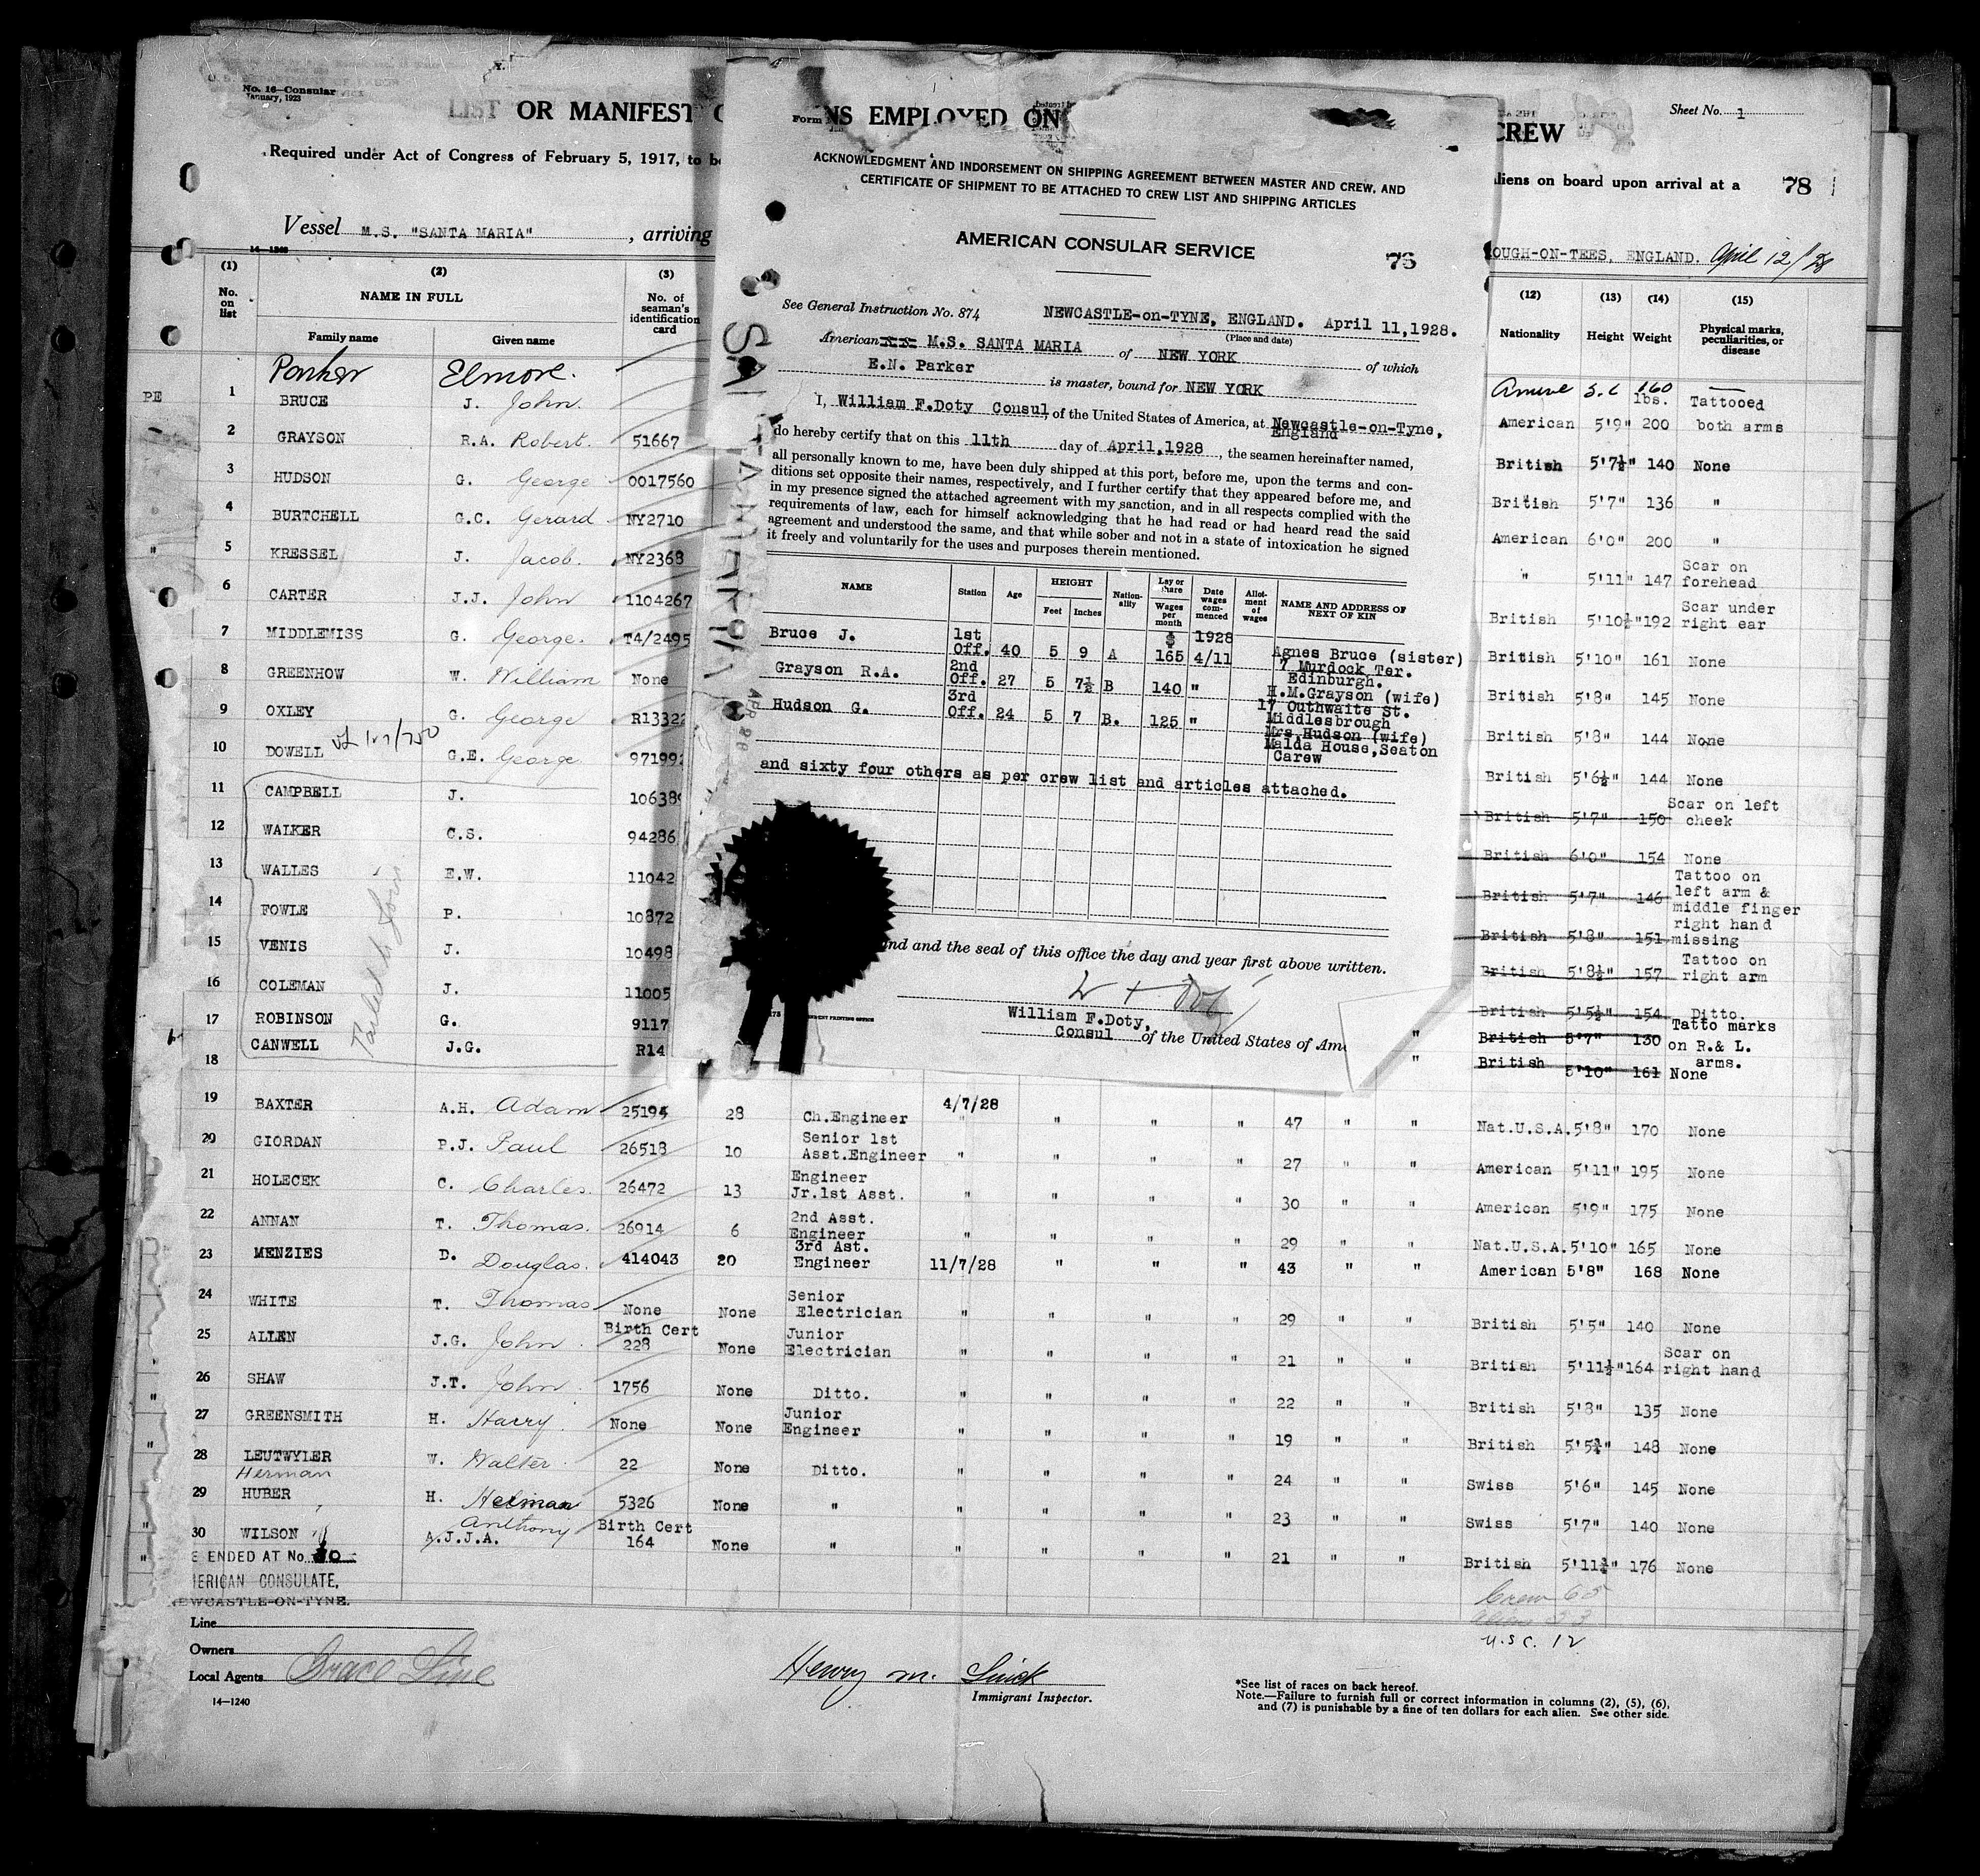 No. 16—Consular
January, 1923
LIST OR MANIFEST
NS EMPLOYED ON
CREW
Sheet No. 1
Required under Act of Congress of February 5, 1917, to be
liens on board upon arrival at a
78
Vessel M.S. "SANTA MARIA" , arriving
OUGH-ON-TEES, ENGLAND. April 12/28
Form
ACKNOWLEDGMENT AND INDORSEMENT ON SHIPPING AGREEMENT BETWEEN MASTER AND CREW, AND
CERTIFICATE OF SHIPMENT TO BE ATTACHED TO CREW LIST AND SHIPPING ARTICLES
AMERICAN CONSULAR SERVICE
76
See General Instruction No. 874 NEWCASTLE-on-TYNE, ENGLAND. April 11,1928.
(Place and date)
American M.S. SANTA MARIA of NEW YORK of which
E.N. Parker is master, bound for NEW YORK
I, William F.Doty Consul of the United States of America, at Newcastle-on-Tyne, England
do hereby certify that on this 11th day of April,1928 , the seamen hereinafter named,
all personally known to me, have been duly shipped at this port, before me, upon the terms and con-
ditions set opposite their names, respectively, and I further certify that they appeared before me, and
in my presence signed the attached agreement with my sanction, and in all respects complied with the
requirements of law, each for himself acknowledging that he had read or had heard read the said
agreement and understood the same, and that while sober and not in a state of intoxication he signed
it freely and voluntarily for the uses and purposes therein mentioned.
NAME Station Age HEIGHT Feet Inches Nation-ality Lay or share Wages per month Date wages com-menced Allot-ment of wages NAME AND ADDRESS OF NEXT OF KIN
Bruce J. 1st Off. 40 5 9 A $ 165 1928 4/11 Agnes Bruce (sister) 7 Murdock Ter. Edinburgh.
Grayson R.A. 2nd Off. 27 5 7½ B 140 " H.M.Grayson (wife) 17 Outhwaite St. Middlesbrough
Hudson G. 3rd Off. 24 5 7 B. 125 " Mrs Hudson (wife) Malda House,Seaton Carew
and sixty four others as per crew list and articles attached.
nd and the seal of this office the day and year first above written.
William F.Doty,
Consul of the United States of Ame
SANTA MARIA
(1) No. on list (2) NAME IN FULL Family name Given name (3) No. of seaman's identification card
(12) Nationality (13) Height (14) Weight (15) Physical marks, peculiarities, or disease
Parker Elmore. 160
1 BRUCE J. John. American 5'9" 200 lbs. Tattooed both arms
2 GRAYSON R.A. Robert. 51667 British 5'7½" 140 None
3 HUDSON G. George 0017560 British 5'7" 136 "
4 BURTCHELL G.C. Gerard NY2710 American 6'0" 200 "
5 KRESSEL J. Jacob. NY2368 " 5'11" 147 Scar on forehead
6 CARTER J.J. John 1104267 British 5'10½" 192 Scar under right ear
7 MIDDLEMISS G. George. T4/2495 British 5'10" 161 None
8 GREENHOW W. William None British 5'8" 145 None
9 OXLEY G. George R13322 British 5'8" 144 None
10 DOWELL G.E. George 971992 British 5'6½" 144 None
11 CAMPBELL J. 10638 British 5'7" 150 Scar on left cheek
12 WALKER C.S. 94286 British 6'0" 154 None
13 WALLES E.W. 11042 British 5'7" 146 Tattoo on left arm & middle finger right hand missing
14 FOWLE P. 10872 British 5'8" 151
15 VENIS J. 10498 British 5'8½" 157 Tattoo on right arm
16 COLEMAN J. 11005 British 5'5½" 154 Ditto.
17 ROBINSON G. 9117 " British 5'7" 130 Tatto marks on R.& L. arms.
18 CANWELL J.G. R14 " British 5'10" 161 None
Failed to Join
19 BAXTER A.H. Adam 25194 28 Ch.Engineer 4/7/28 " " " " 47 " " Nat.U.S.A. 5'8" 170 None
20 GIORDAN P.J. Paul 26518 10 Senior 1st Asst.Engineer " " " " 27 " " American 5'11" 195 None
21 HOLECEK C. Charles. 26472 13 Engineer Jr.1st Asst. " " " " 30 " " American 5'9" 175 None
22 ANNAN T. Thomas. 26914 6 2nd Asst. Engineer " " " " 29 " " Nat.U.S.A. 5'10" 165 None
23 MENZIES D. Douglas. 414043 20 3rd Ast. Engineer 11/7/28 " " " 43 " " American 5'8" 168 None
24 WHITE T. Thomas None None Senior Electrician " " " " 29 " " British 5'5" 140 None
25 ALLEN J.G. John Birth Cert 228 None Junior Electrician " " " " 21 " " British 5'11½" 164 Scar on right hand
26 SHAW J.T. John 1756 None Ditto. " " " " 22 " " British 5'8" 135 None
27 GREENSMITH H. Harry None None Junior Engineer " " " " 19 " " British 5'5¾" 148 None
28 LEUTWYLER W. Walter 22 None Ditto. " " " " 24 " " Swiss 5'6" 145 None
Herman
29 HUBER H. Herman 5326 None " " " " " 23 " " Swiss 5'7" 140 None
30 WILSON A.J.J.A. Anthony Birth Cert 164 None " " " " " 21 " " British 5'11¾" 176 None
E ENDED AT No. 30
MERICAN CONSULATE,
NEWCASTLE-ON-TYNE.
Crew 65
U.S.C. 12
Line
Owners
Local Agents Grace Line
14—1240
Henry M.
Immigrant Inspector.
*See list of races on back hereof.
Note.—Failure to furnish full or correct information in columns (2), (5), (6),
and (7) is punishable by a fine of ten dollars for each alien. See other side.